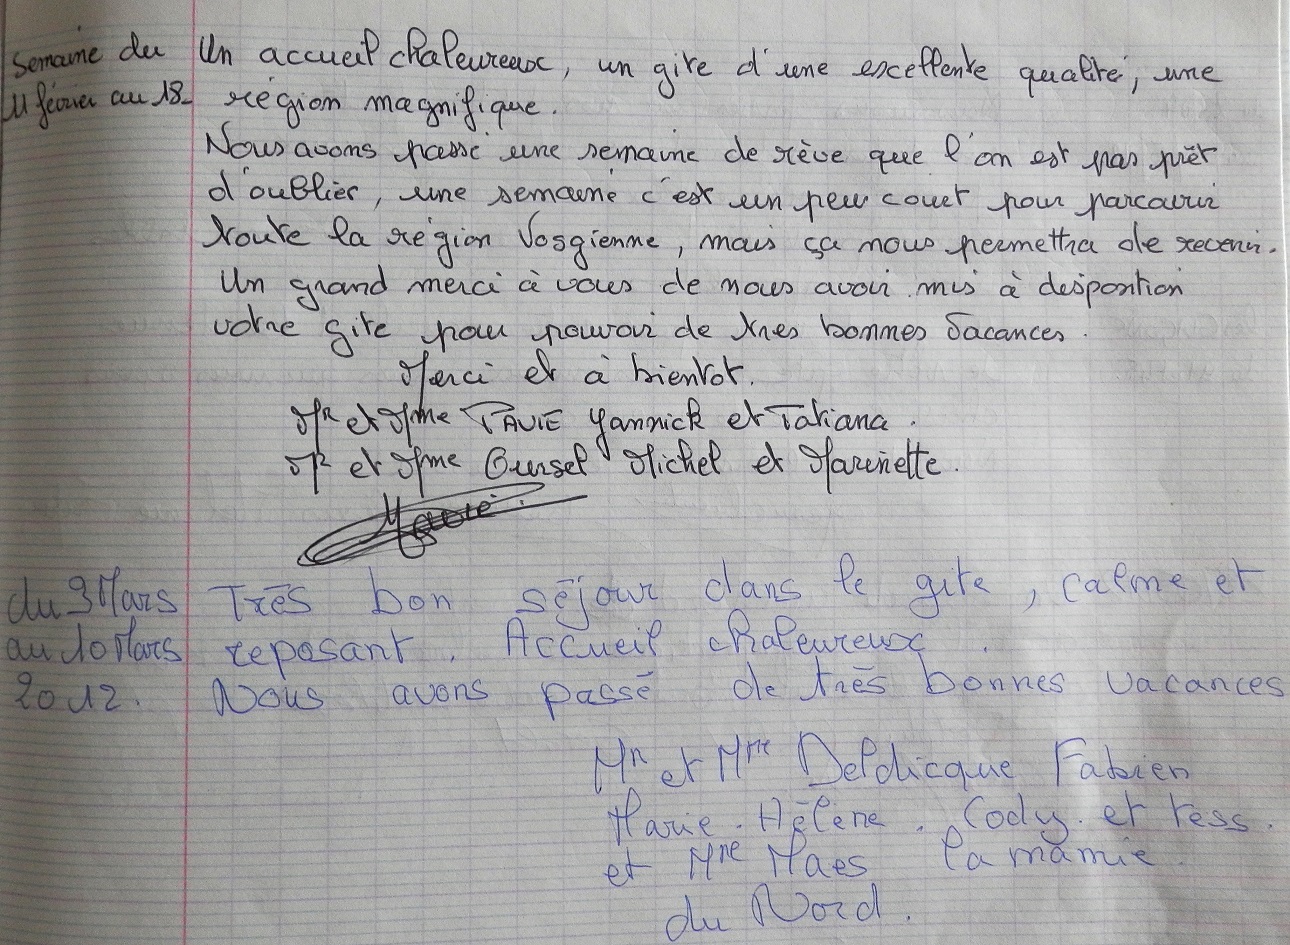 semaine du Un accueil chaleureux, un gite d'une excellente qualité, une
11 février au 18 région magnifique.
Nous avons passé une semaine de rêve que l'on est pas prêt
d'oublier, une semaine c'est un peu court pour parcourir
toute la région Vosgienne, mais ça nous permettra de revenir.
Un grand merci à vous de nous avoir mis à dispontion
votre gite pour pouvoir de tres bonnes Vacances.
Merci et à bientot.
Mr et Mme PAVIE Yannick et Tatiana.
Mr et Mme Oursel Michel et Marinette.
du 3 Mars Très bon séjour dans le gite, calme et
au 10 Mars reposant. Accueil chaleureux.
2012. Nous avons passé de très bonnes vacances
Mr et Mme Deldicque Fabien
Marie-Hélène. Cody et tess.
et Mme Maes la mamie
du Nord.